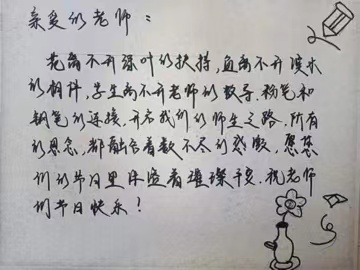 亲爱的老师：
花离不开绿叶的扶持，鱼离不开溪水
的相伴，学生离不开老师的教导，粉笔和
钢笔的连接，开启我们的师生之路，所有
的思念，都融合着数不尽的感激，愿您
们的节日里休逸着璀璨千炅，祝老师
们节日快乐！